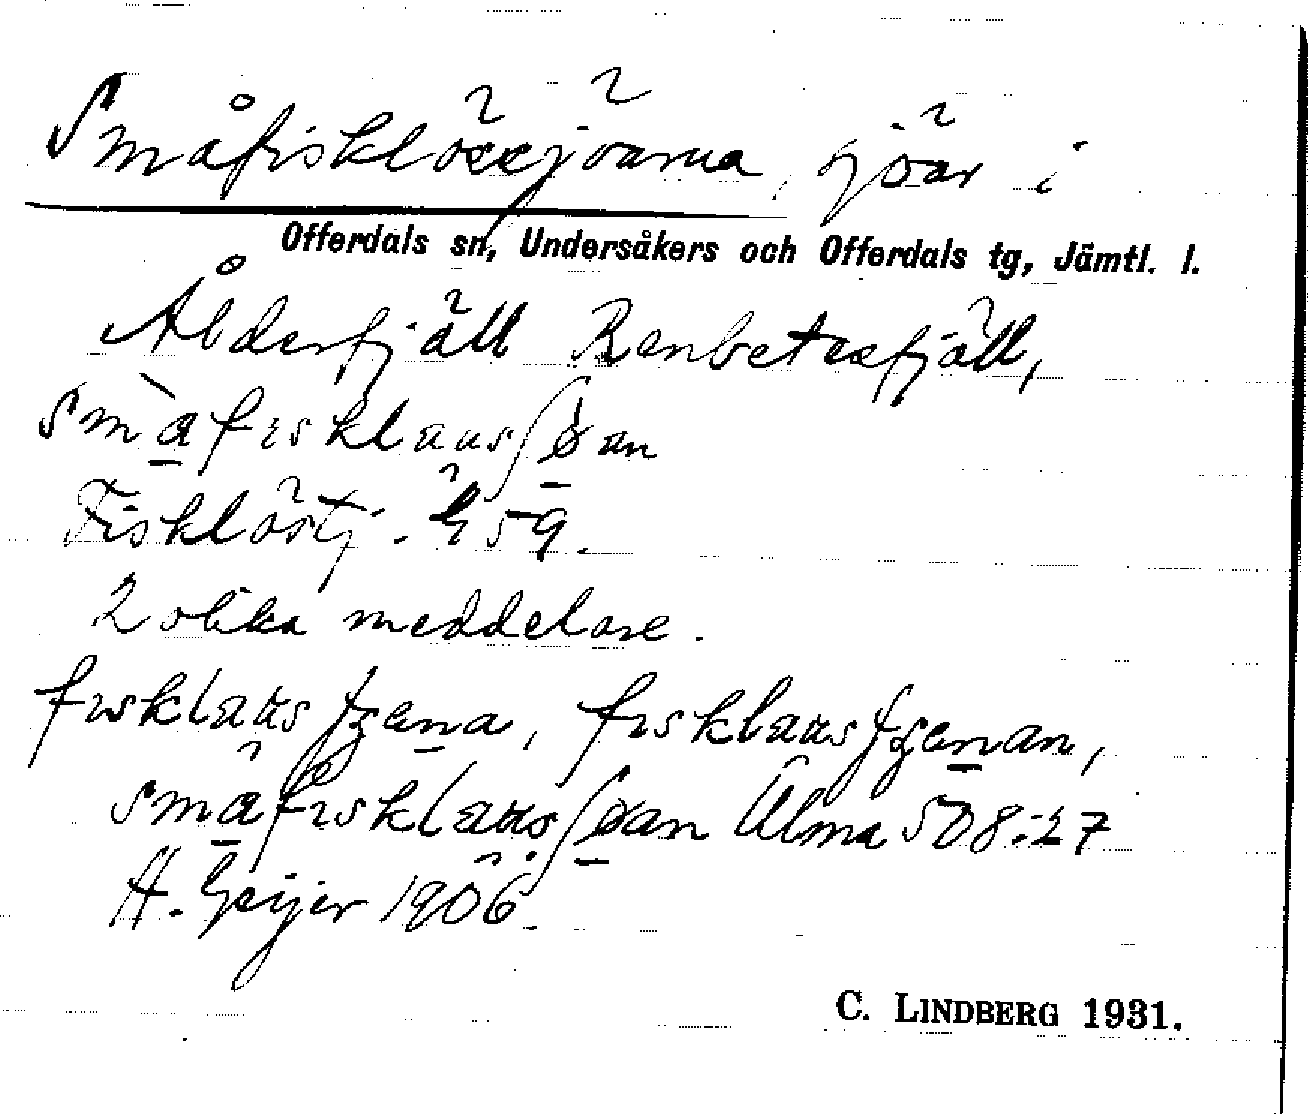 Småfisklössjöarna, sjöar i
Offerdals sn, Undersåkers och Offerdals tg, Jämtl. l.
Åbderfjäll Renbetesfjäll,
småfisklausʃøan
Fisklöstj. h 59.
2 olika meddelare.
fɪsklaus tjɛna, fɪsklaus tjɛnan,
småfɪsklausʃøan Alma 508:27
H. Geijer 1906.
C. LINDBERG 1931.